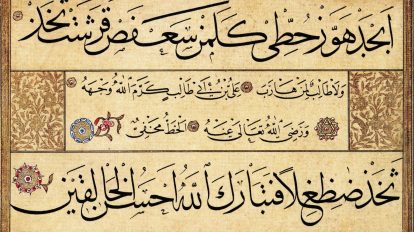 ابجد هوز حطي كلمن سعفص قرشت ثخذ
ولا طالب لمن هارب علي بن أبي طالب كرم الله وجهه
ورضي الله تعالى عنه الخط مخفي
ثخذ ضظغلا فتبارك الله احسن الخالقين